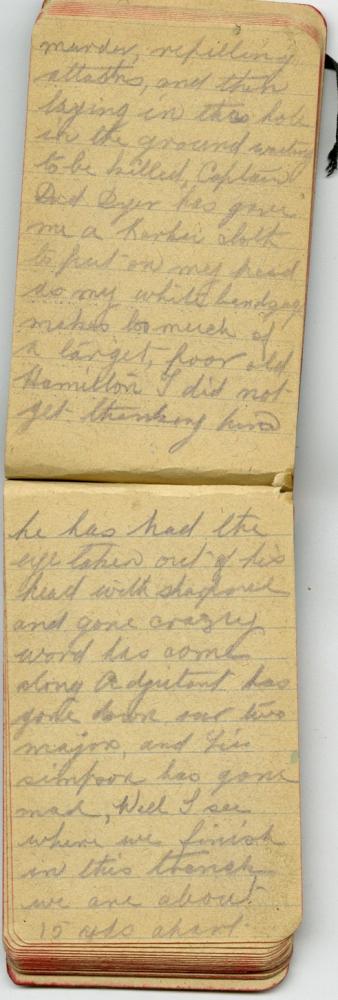 murder, repelling
attacks, and then
laying in this hole
in the ground waiting
to be killed, Captain
Dad Dyer has gave
me a harkie cloth
to put on my head
as my white bandage
makes to much of
a target, poor old
Hamilton I did not
get thanking him
he has had the
eye taken out of his
head with shapnel
and gone crazey
word has come
along Adjutant has
gone down our two
majors, and
simpson has gone
mad, Well I see
where we finish
in this trench
we are about
15 yds apart